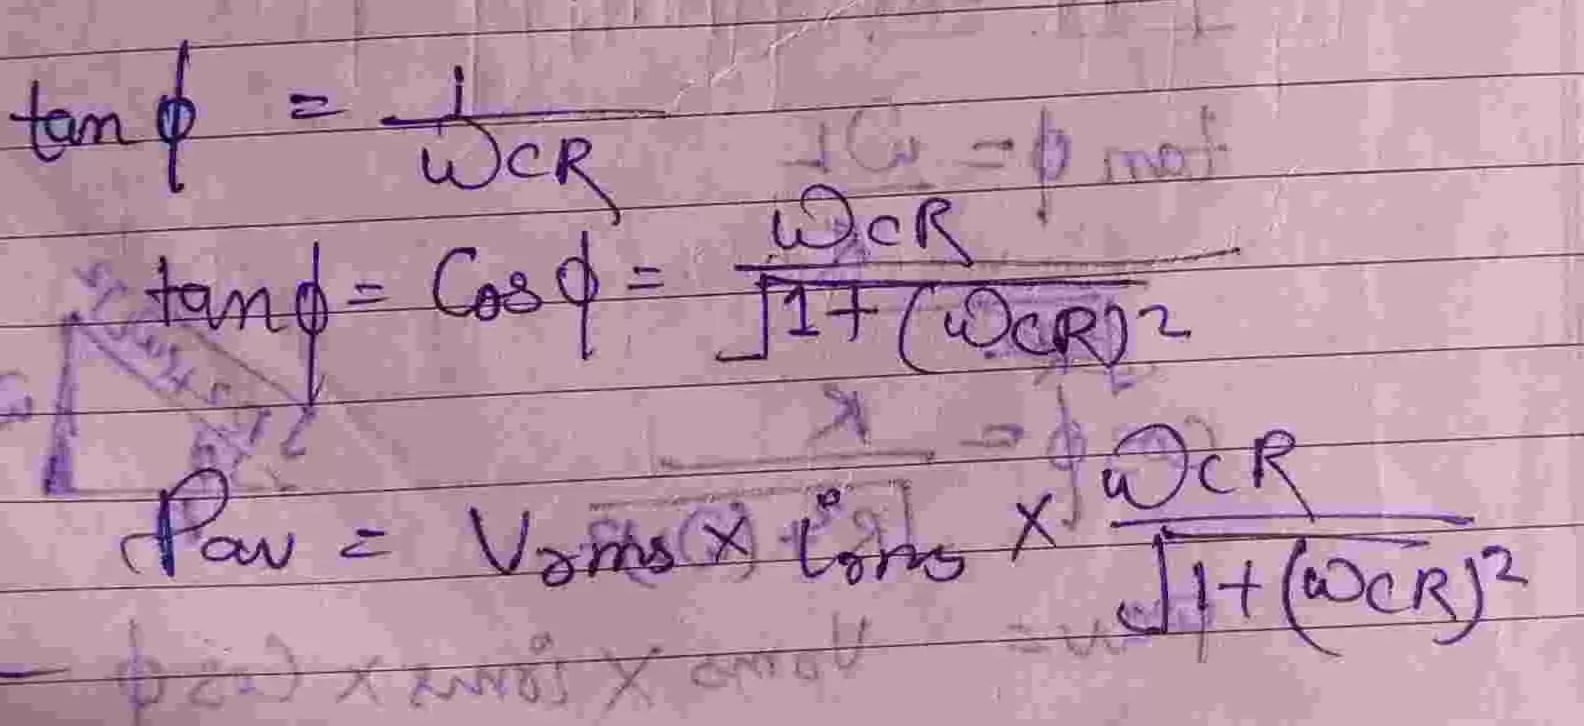 tan ϕ = 1/ωCR
tan ϕ = Cos ϕ = ωCR/√1+(ωCR)²
Pav = Vrms × irms × ωCR/√1+(ωCR)²